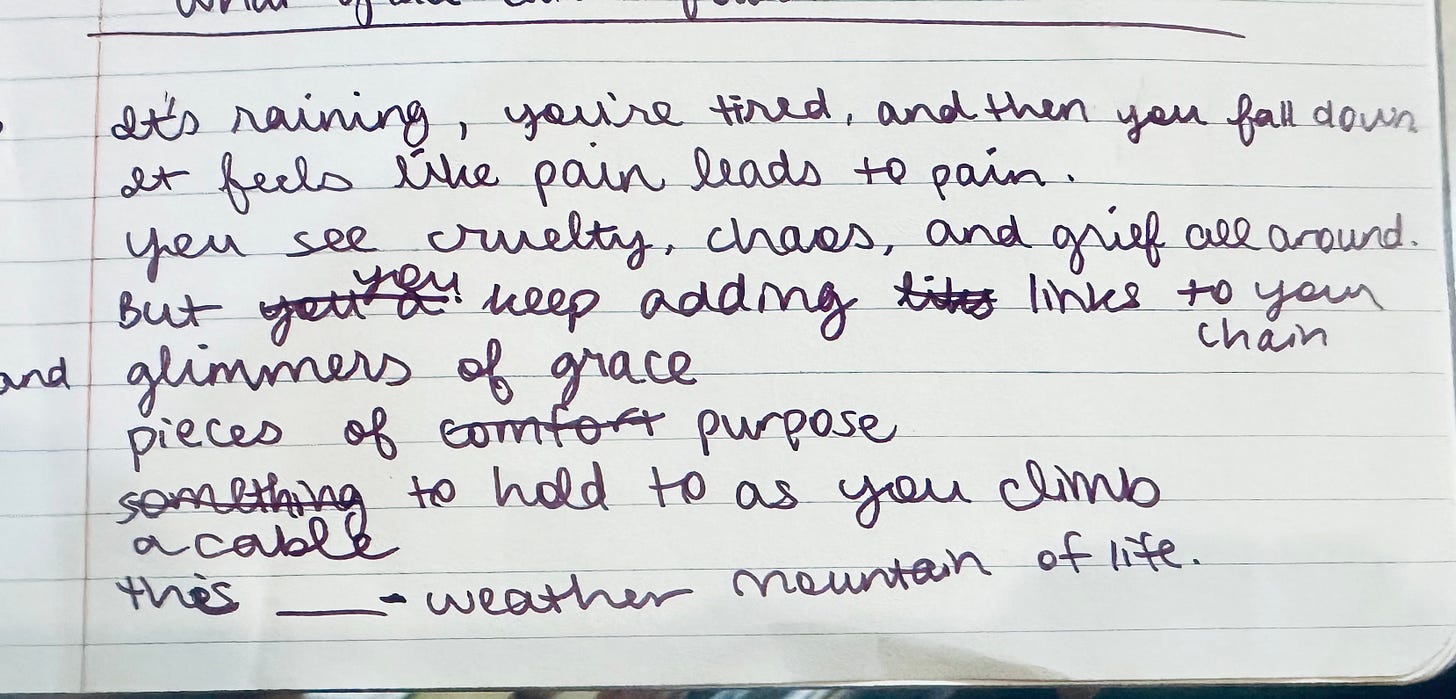 It's raining, you're tired, and then you fall down
It feels like pain leads to pain.
you see cruelty, chaos, and grief all around.
you
But you a keep adding links to your
chain
and glimmers of grace
pieces of comfort purpose
something to hold to as you climb
a cable
this ___-weather mountain of life.